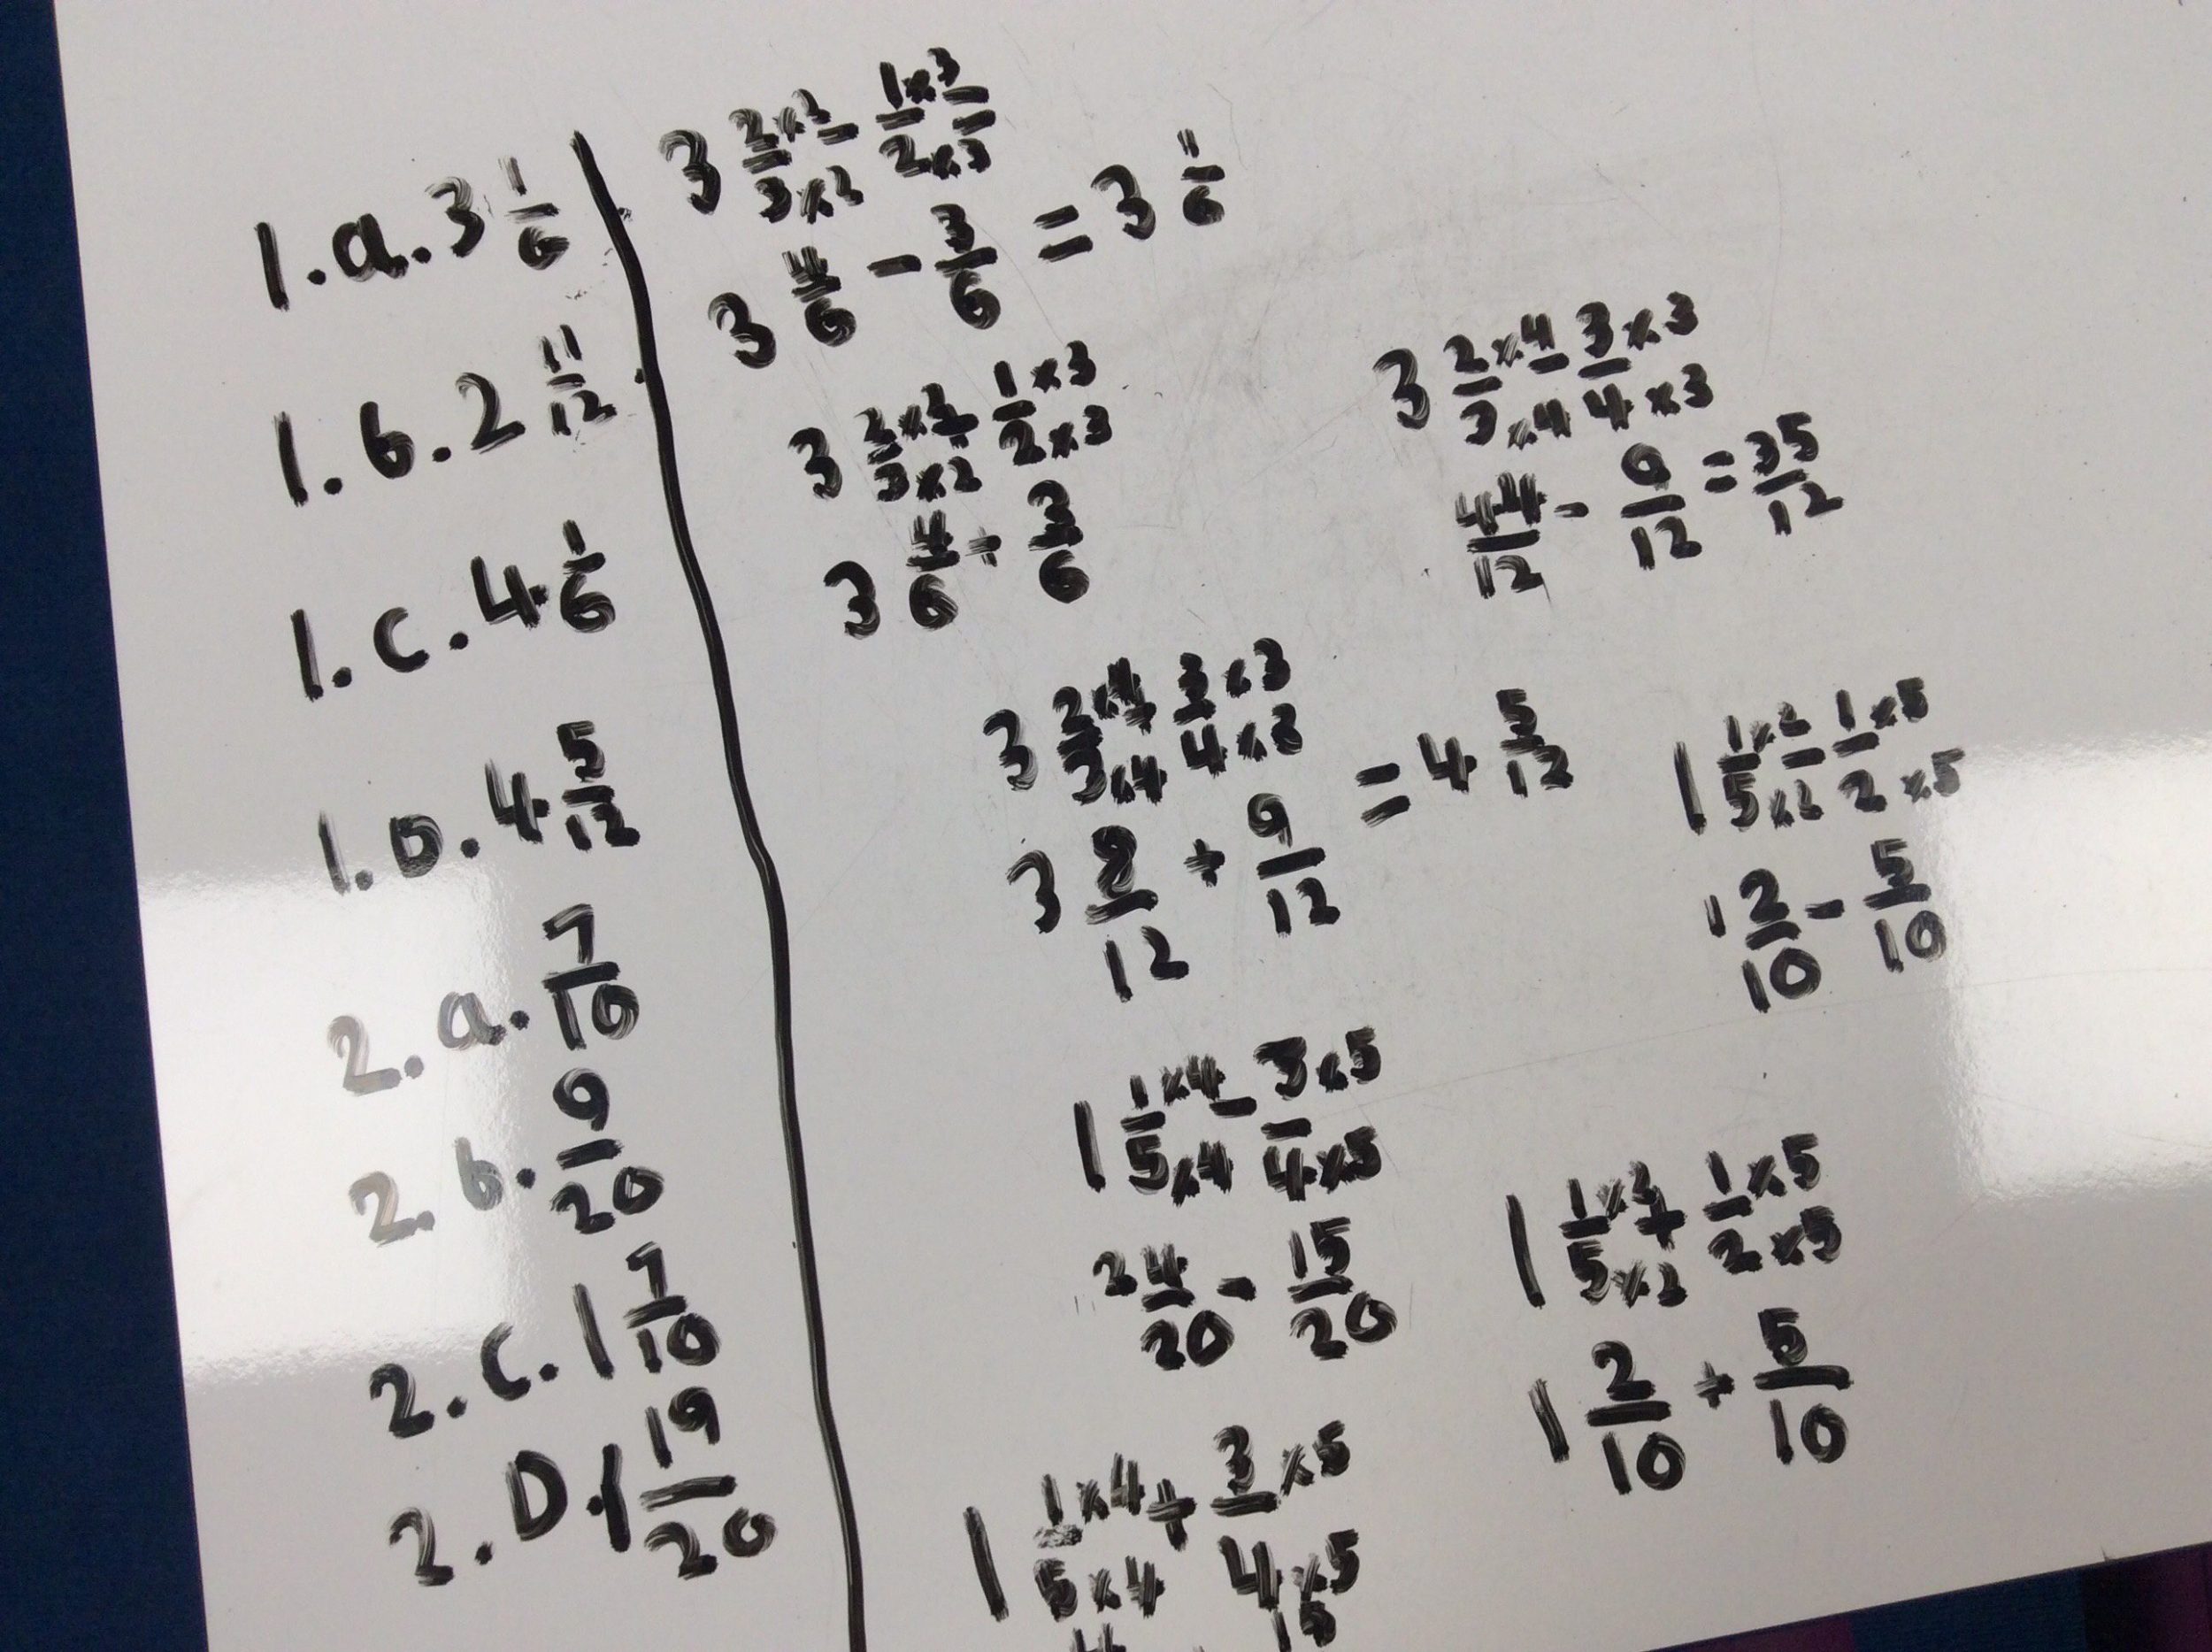 1.a. 3 1/6
1.b. 2 11/12
1.c. 4 1/6
1.D. 4 5/12
2.a. 7/10
2.b. 9/20
2.c. 1 7/10
2.D. 1 19/20
3 2×2/3×2 - 1×3/2×3
3 4/6 - 3/6 = 3 1/6
3 2×2/3×2 + 1×3/2×3
3 4/6 + 3/6
3 2×4/3×4 - 3×3/4×3
44/12 - 9/12 = 35/12
3 2×4/3×4 3×3/4×3
3 8/12 + 9/12 = 4 5/12
1 1×2/5×2 - 1×5/2×5
1 2/10 - 5/10
1 1×4/5×4 - 3×5/4×5
24/20 - 15/20
1 1×2/5×2 + 1×5/2×5
1 2/10 + 5/10
1 1×4/5×4 + 3×5/4×5
4 15